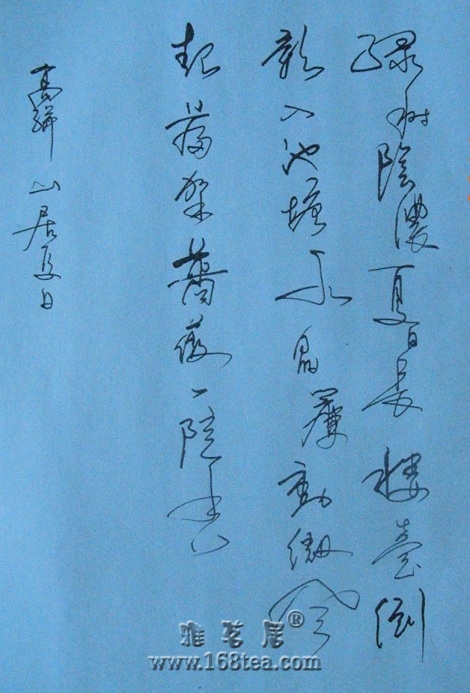 绿树陰濃夏日長楼臺倒
影入池塘水晶簾動微风
起滿架薔薇一院香
高駢 山居夏日
雅茗居®
www.168tea.com